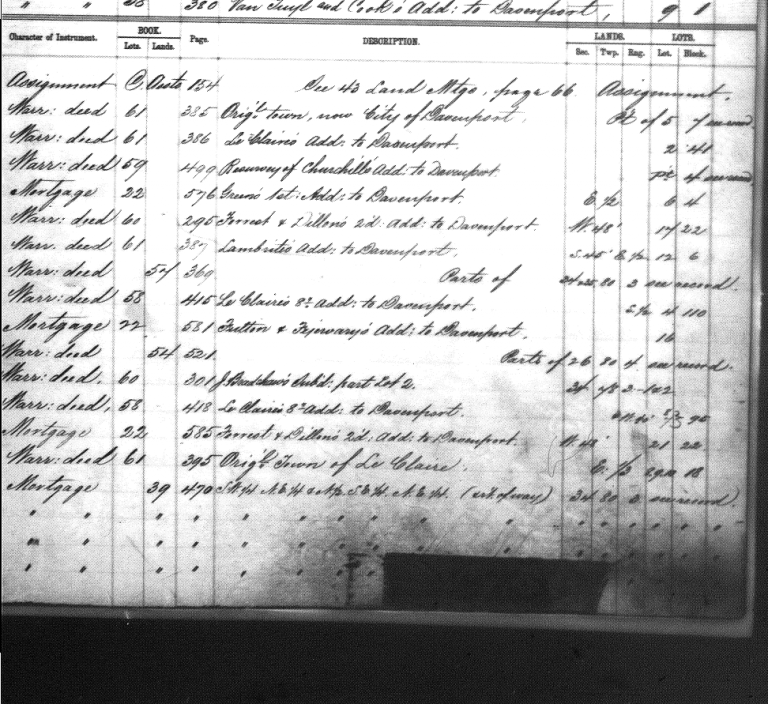 " " 58 380 Van Tuyl and Cook's Add: to Davenport, 9 1
Character of Instrument. BOOK. Page. DESCRIPTION. LANDS. LOTS.
Lots. Lands. Sec. Twp. Rng. Lot. Block.
Assignment C. Austs 154 See 43 Land Mtgs, page 66. Assignment.
Warr: deed 61 385 Orig'l town, now City of Davenport, Pt of 5 7 see record.
Warr: deed 61 386 Le Claire's Add: to Davenport. 2 41
Warr: deed 59 499 Resurvey of Churchill's Add: to Davenport. 4 see record
Mortgage 22 576 Green's 1st: Add: to Davenport. E. ½ 6 4
Warr: deed 60 295 Forrest & Dillon's 2d: Add: to Davenport. W. 48' 17 22
Warr. deed 61 387 Lambrite's Add: to Davenport. S. 45' E. ½ 12 6
Warr: deed 54 369 Parts of 24 & 25 80 3 see record.
Warr: deed 58 415 Le Claire's 8th Add: to Davenport. S ½ 4 110
Mortgage 22 581 Fulton & Fejervary's Add: to Davenport. 16
Warr: deed 54 521 Parts of 26 80 4 see record.
Warr: deed. 60 301 J. Bradshaw's Subd: part Lot 2. 34 78 2
Warr: deed, 58 418 Le Claire's 8th Add: to Davenport. 90
Mortgage 22 585 Forrest & Dillon's 2d: Add: to Davenport. W. 48' 21 22
Warr: deed 61 395 Orig'l Town of Le Claire. E. ⅓ 18
Mortgage 39 470 S.W. ¼ N.E. ¼ & N ½ S.E. ¼ N.E. ¼. (ex. r't of way) 34 80 see record.
" " " " " " " " " " " " " "
" " " " " " " " " " "
" " " " " " " " "